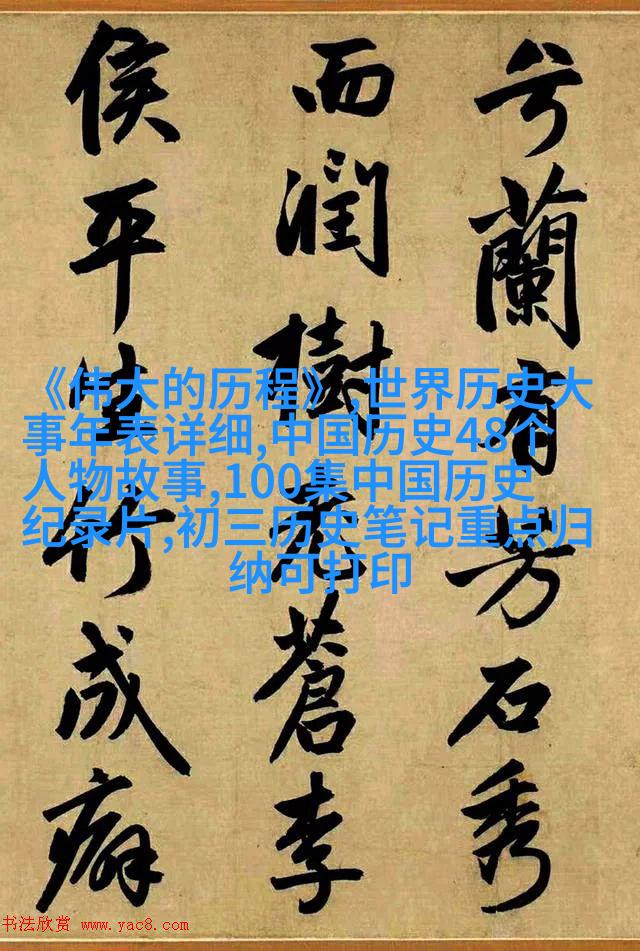 兮蘭有芳石秀
而潤樹老蒼李
侯平生竹成癖
《伟大的历程》,世界历史大
事年表详细,中国历史48个
人物故事,100集中国历史
纪录片,初三历史笔记重点归
纳可打印
书法欣赏 www.yac8.com